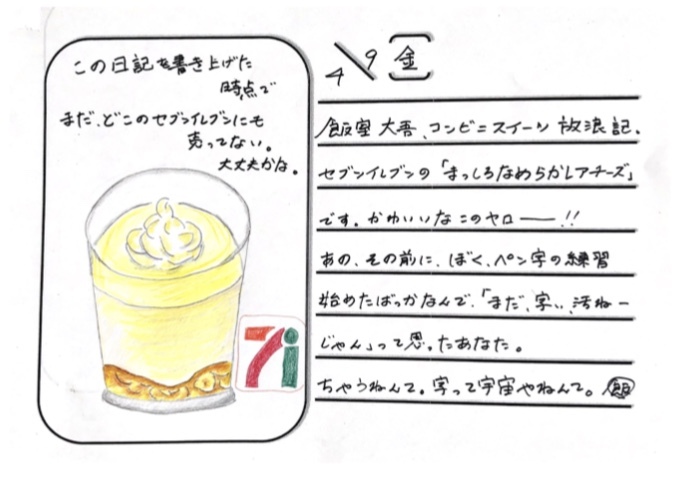 この日記を書き上げた
時点で
まだ、どこのセブンイレブンにも
売ってない。
大丈夫かな。
7i
4/9 [金]
飯室 大吾、コンビニスイーツ 放浪記。
セブンイレブンの「まっしろなめらかレアチーズ」
です。かわいいなこのヤロー——!!
あの、その前に、ぼく、ペン字の練習
始めたばっかなんで、「まだ、字ぃ、汚ねー
じゃん」って思ったあなた。
ちゃうねんて。字って宇宙やねんて。飯